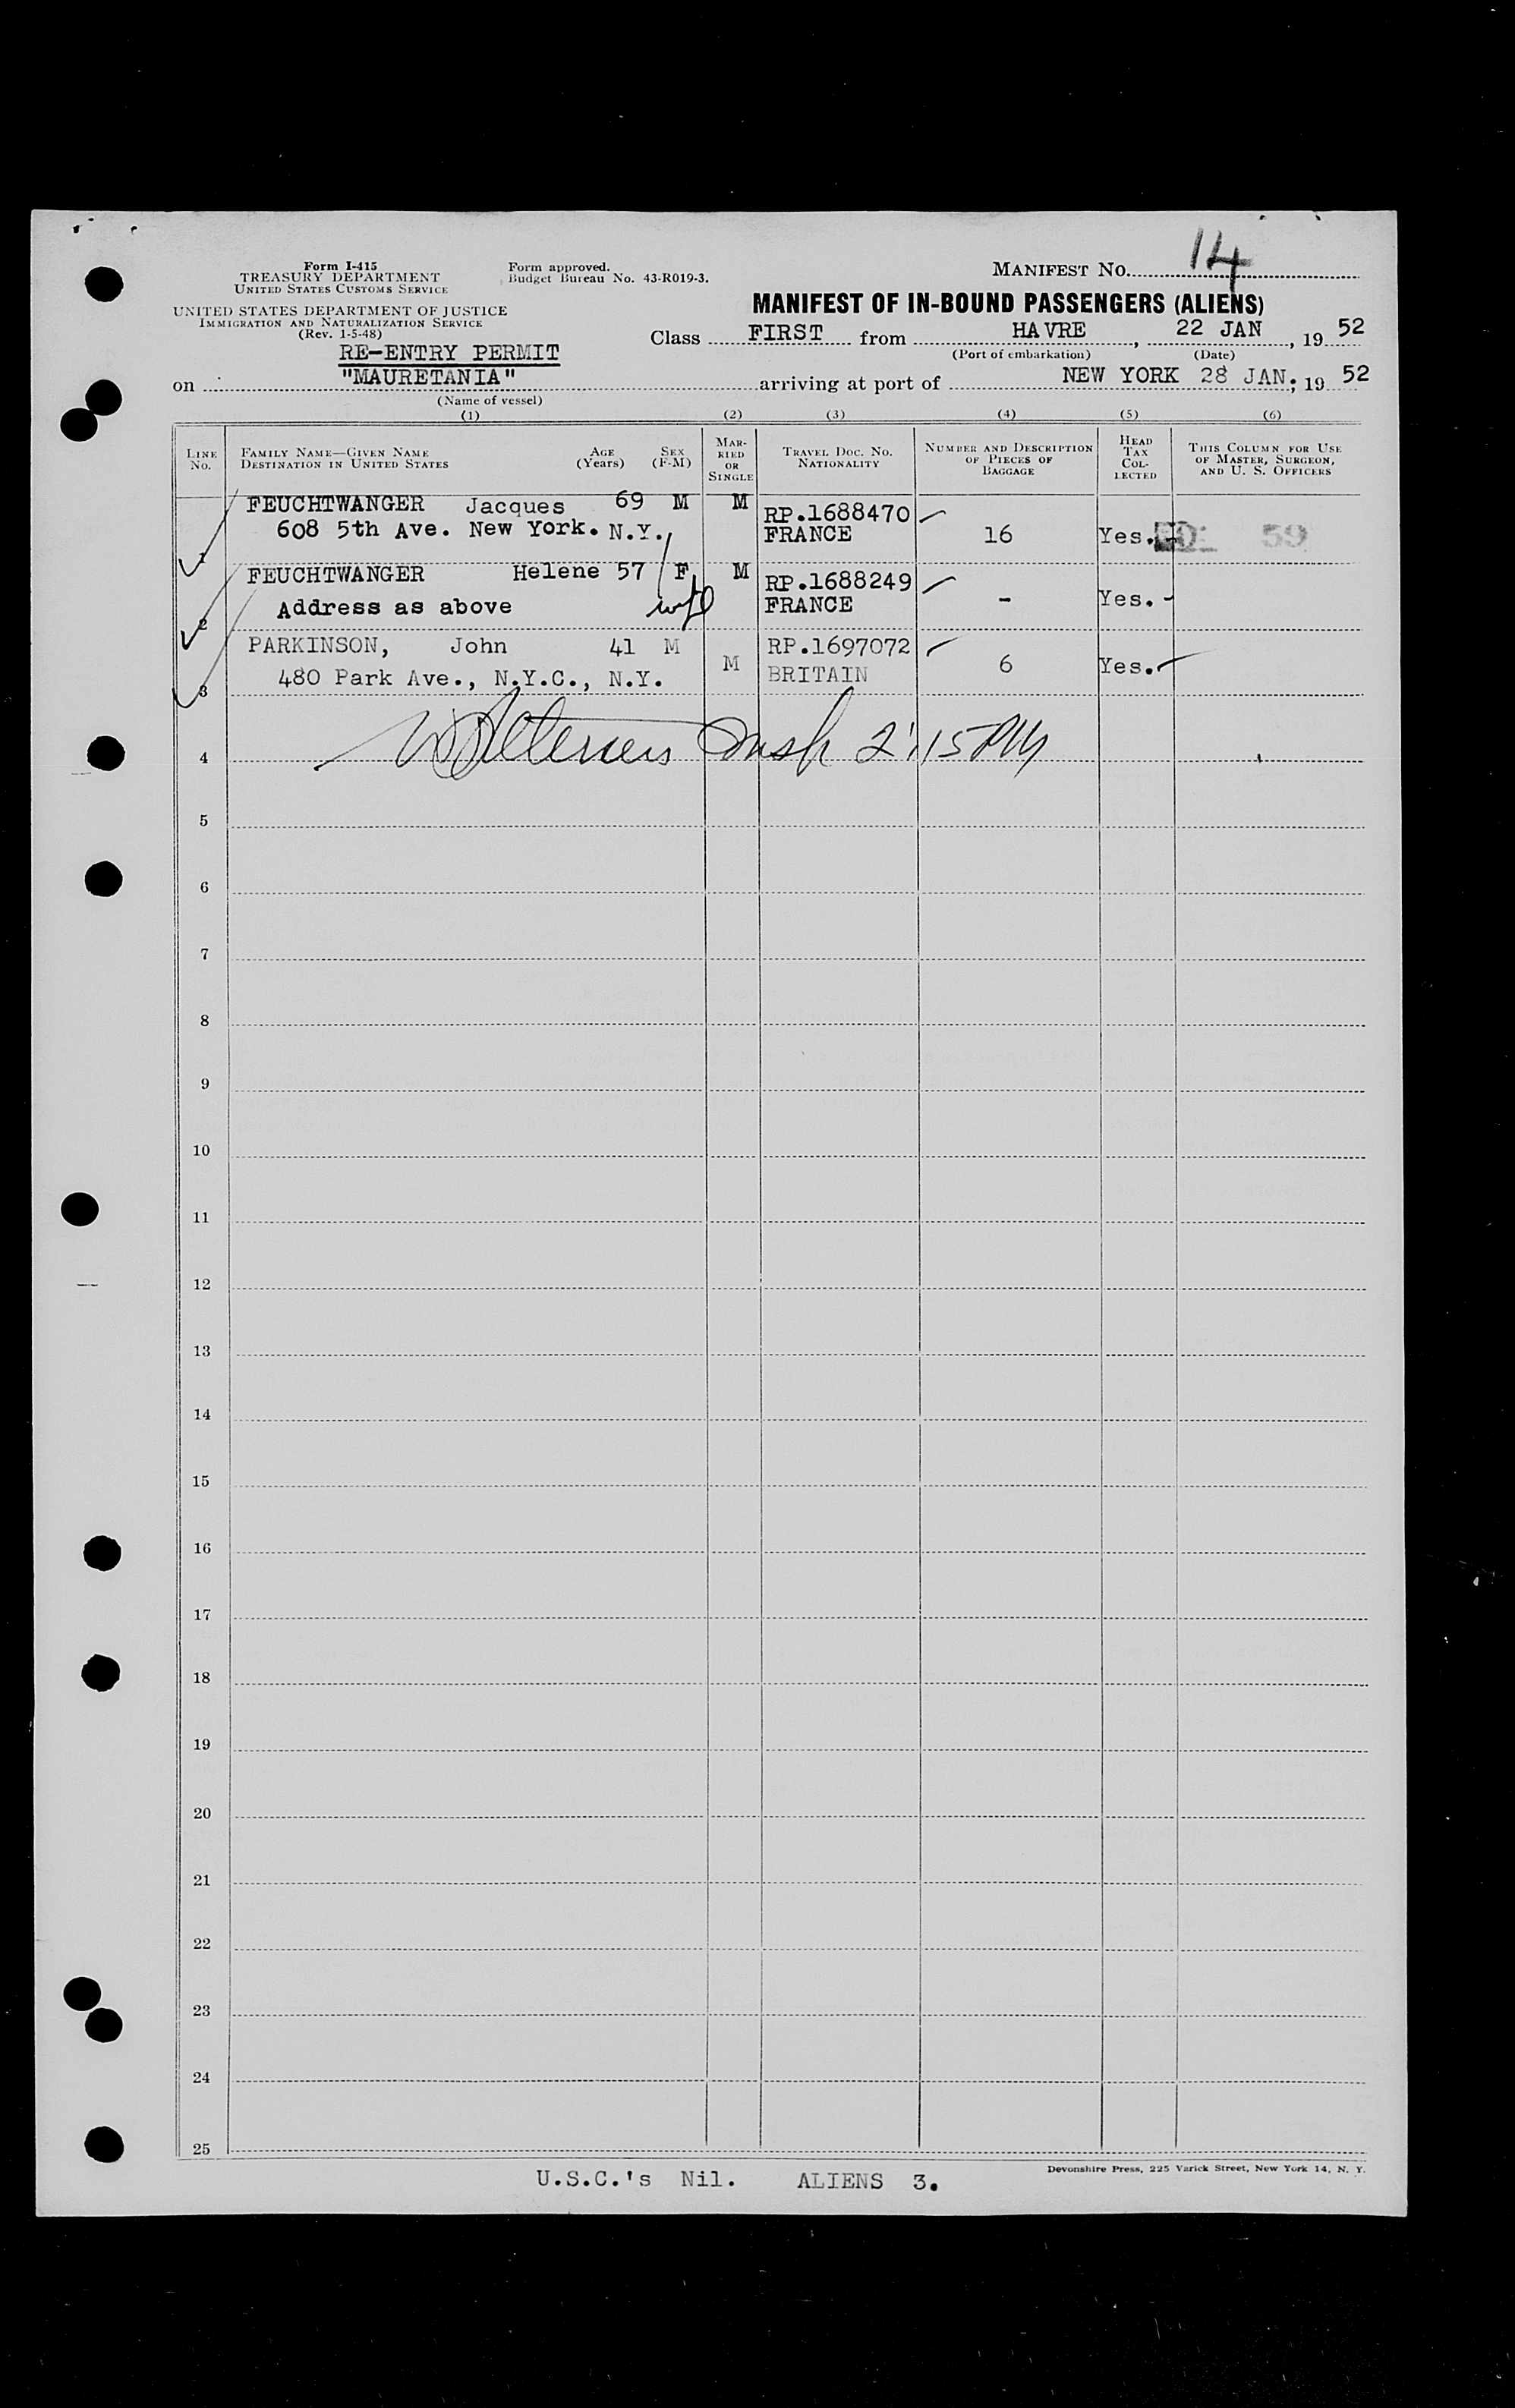 14
Form I-415
TREASURY DEPARTMENT
UNITED STATES CUSTOMS SERVICE
Form approved.
Budget Bureau No. 43-R019-3.
MANIFEST NO.
UNITED STATES DEPARTMENT OF JUSTICE
IMMIGRATION AND NATURALIZATION SERVICE
(Rev. 1-5-48)
MANIFEST OF IN-BOUND PASSENGERS (ALIENS)
Class FIRST from HAVRE, 22 JAN, 1952
(Port of embarkation) (Date)
RE-ENTRY PERMIT
on "MAURETANIA" arriving at port of NEW YORK 28 JAN; 19 52
(Name of vessel)
(1) (2) (3) (4) (5) (6)
LINE No. FAMILY NAME—GIVEN NAME DESTINATION IN UNITED STATES AGE (Years) SEX (F-M) MARRIED OR SINGLE TRAVEL DOC. NO. NATIONALITY NUMBER AND DESCRIPTION OF PIECES OF BAGGAGE HEAD TAX COLLECTED THIS COLUMN FOR USE OF MASTER, SURGEON, AND U. S. OFFICERS
1 FEUCHTWANGER Jacques 69 M M RP.1688470
608 5th Ave. New York. N.Y. FRANCE 16 Yes. 59
2 FEUCHTWANGER Helene 57 F M RP.1688249
Address as above wife FRANCE - Yes. -
3 PARKINSON, John 41 M M RP.1697072
480 Park Ave., N.Y.C., N.Y. BRITAIN 6 Yes.
4 Insp 2:15 PM
5
6
7
8
9
10
11
12
13
14
15
16
17
18
19
20
21
22
23
24
25
Devonshire Press, 225 Varick Street, New York 14, N. Y.
U.S.C.'s Nil. ALIENS 3.